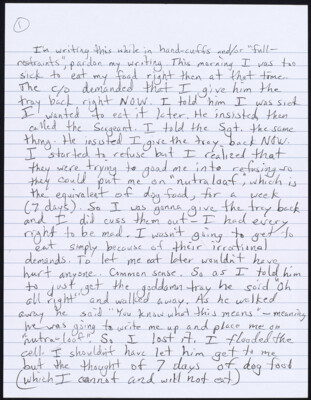 1
I'm writing this while in hand-cuffs and/or "full-
restraints", pardon my writing. This morning I was too
sick to eat my food right then at that time.
The c/o demanded that I give him the
tray back right NOW. I told him I was sick
I wanted to eat it later. He insisted, then
called the Sergeant. I told the Sgt. the same
thing. He insisted I give the tray back NOW.
I started to refuse but I realized that
they were trying to goad me into refusing so
they could put me on "nutraloaf", which is
the equivalent of dog food, for a week
(7 days). So I was gonna give the tray back
and I did cuss them out - I had every
right to be mad. I wasn't going to get to
eat simply because of their irrational
demands. To let me eat later wouldn't have
hurt anyone. Common sense. So as I told him
to just get the goddamn tray he said "Oh
all right" and walked away. As he walked
away he said "You know what this means" - meaning
he was going to write me up and place me on
"nutra-loaf". So I lost it. I flooded the
cell. I shouldn't have let him get to me
but the thought of 7 days of dog food
(which I cannot and will not eat)